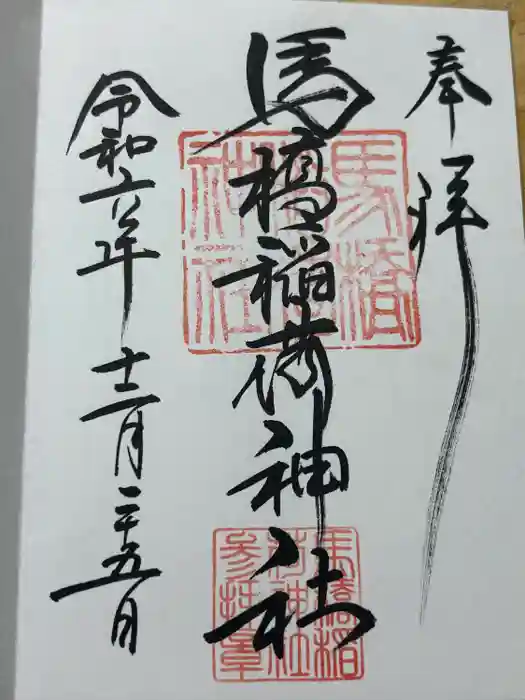 奉拝
馬橋稲荷神社
令和六年十二月二十五日
馬橋稲荷神社
馬橋稲荷神社参拝章